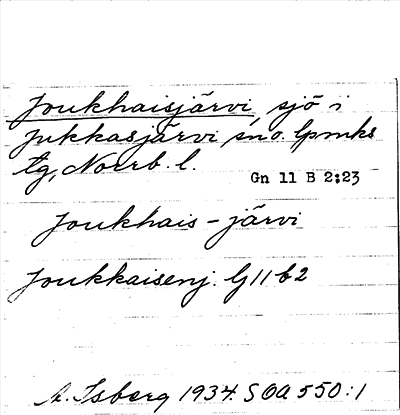 Joukhaisjärvi sjö i
Jukkasjärvi sn o. lpmks
tg, Norrb. l.
Gn 11 B 2;23
Joukhais-järvi
Joukkaisenj. G11b2
A. Isberg 1934. SOA 550:1